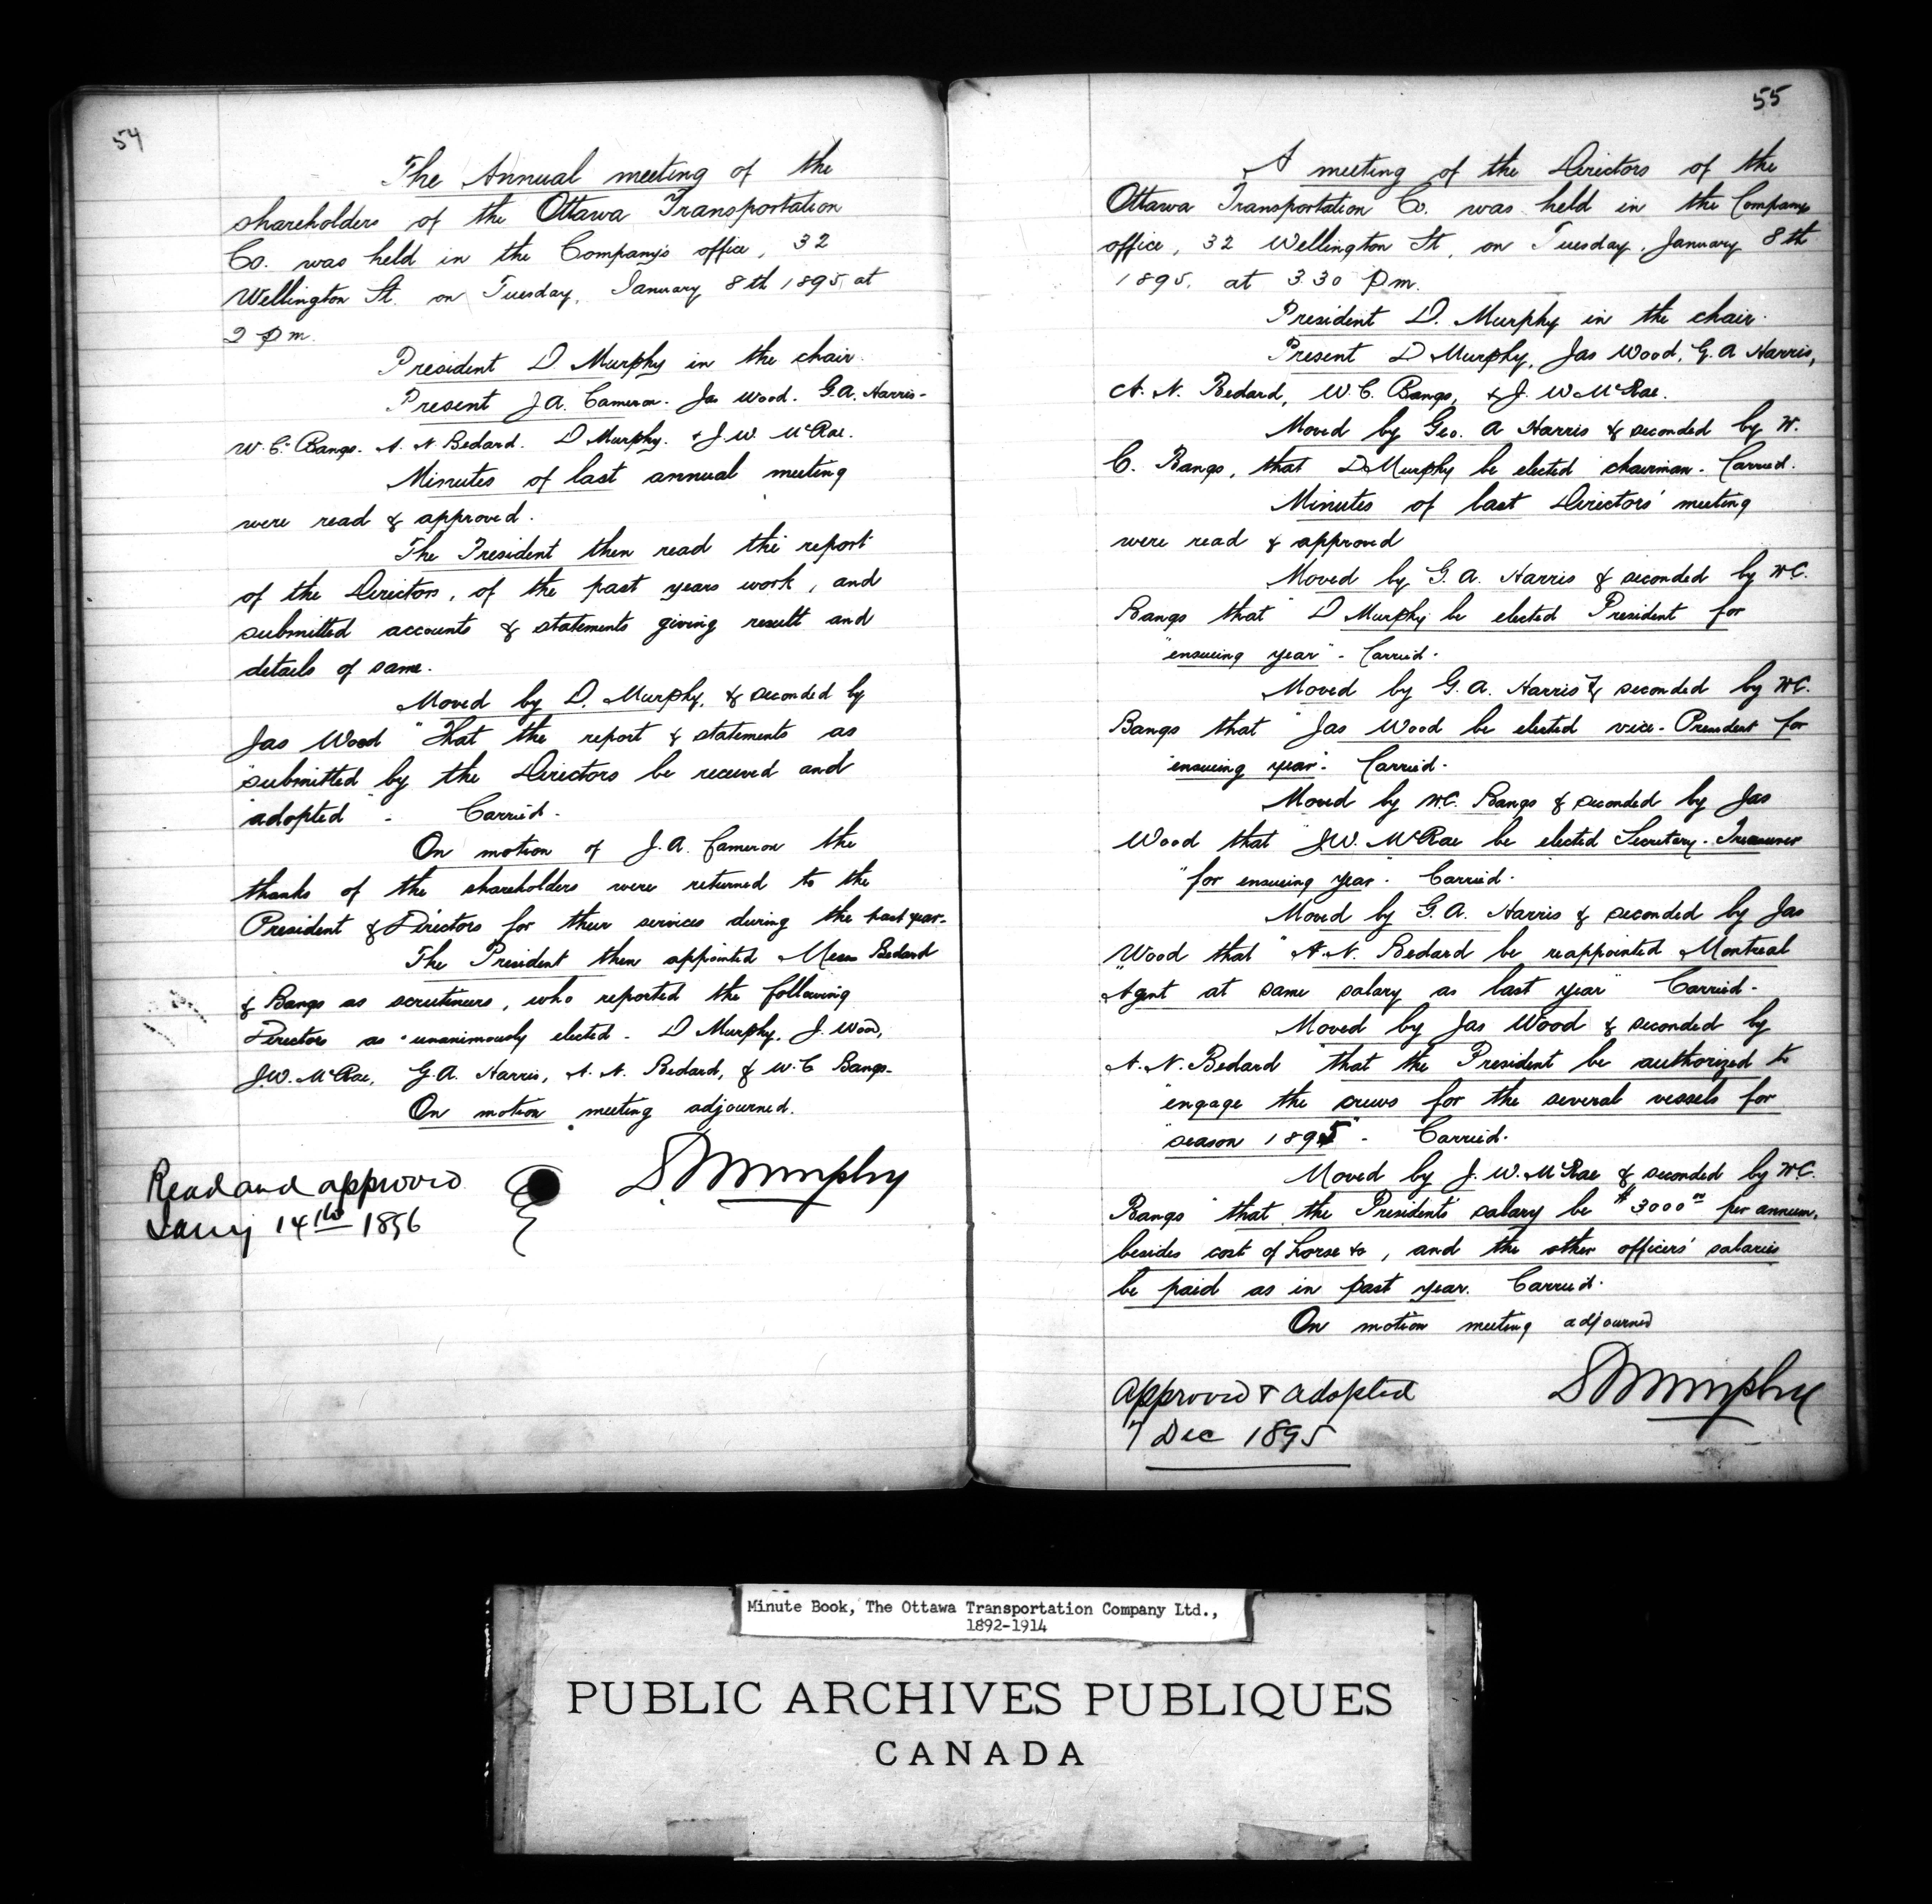 54
The Annual meeting of the
shareholders of the Ottawa Transportation
Co. was held in the Company's office, 32
Wellington St. on Tuesday, January 8th 1895 at
2 pm.
President D. Murphy in the chair.
Present J.A. Cameron. Jas Wood. G.A. Harris-
W.C. Bangs. A. N. Bedard. D Murphy. & J.W. McRae.
Minutes of last annual meeting
were read & approved.
The President then read the report
of the Directors, of the past years work, and
submitted accounts & statements giving result and
details of same.
Moved by D. Murphy, & seconded by
Jas Wood "That the report & statements as
"submitted by the Directors be received and
"adopted" - Carried.
On motion of J.A. Cameron the
thanks of the shareholders were returned to the
President & Directors for their services during the past year.
The President then appointed Messrs Bedard
& Bangs as scrutineers, who reported the following
Directors as unanimously elected - D Murphy, J. Wood,
J.W. McRae, G.A. Harris, A. N. Bedard, & W.C Bangs-
On motion meeting adjourned.
D. Murphy
Read and approved
Jany 14th 1896
55
A meeting of the Directors of the
Ottawa Transportation Co. was held in the Companys
office, 32 Wellington St, on Tuesday, January 8th
1895, at 3.30 Pm.
President D. Murphy in the chair.
Present D Murphy, Jas Wood, G.A Harris,
A. N. Bedard, W.C. Bangs, & J. W McRae.
Moved by Geo. A Harris & seconded by W.
C. Bangs, that D Murphy be elected chairman - Carried.
Minutes of last Directors' meeting
were read & approved
Moved by G. A. Harris & seconded by W.C.
Bangs that "D Murphy be elected President for
"ensuing year" - Carried.
Moved by G. A. Harris & seconded by W.C.
Bangs that "Jas Wood be elected vice-President for
"ensuing year". Carried.
Moved by W.C. Bangs & seconded by Jas
Wood that "J.W. McRae be elected Secretary-Treasurer
"for ensuing year". Carried.
Moved by G. A. Harris & seconded by Jas
Wood that "A. N. Bedard be reappointed Montreal
"Agent at same salary as last year" Carried-
Moved by Jas Wood & seconded by
A. N. Bedard "that the President be authorized to
"engage the crews for the several vessels for
"season 1895" - Carried.
Moved by J. W. McRae & seconded by W.C.
Bangs "that the Presidents salary be $3000 00 per annum,
besides cost of horse &c, and the other officers' salaries
be paid as in past year. Carried.
On motion meeting adjourned
D Murphy
Approved & adopted
7 Dec 1895
Minute Book, The Ottawa Transportation Company Ltd.,
1892-1914
PUBLIC ARCHIVES PUBLIQUES
CANADA